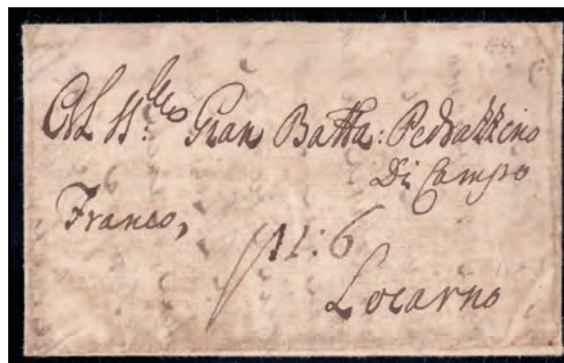 Al Sig.re Gian Batta: Pedrazzino
Di Campo
Franco,
11:6
Locarno